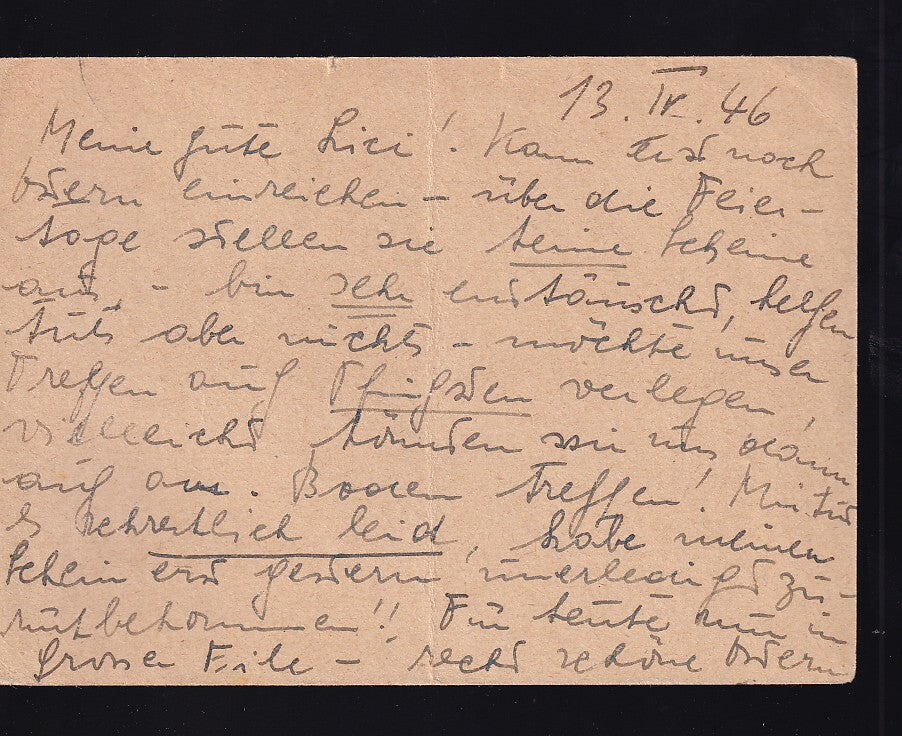 13. IV. 46
Meine gute Lici! Kann erst noch
Ostern einreichen – über die Feier-
tage stellen sie keine Scheine
aus, – bin sehr enttäuscht, helfen
tut's aber nichts – möchte unser
Treffen auf Pfingsten verlegen,
vielleicht könnten wir uns dann
auf am. Boden treffen! Mir tut
es schrecklich leid, habe meinen
Schein erst gestern unerledigt zu-
rückbekommen!! Für heute nun in
grosser Eile – recht schöne Ostern